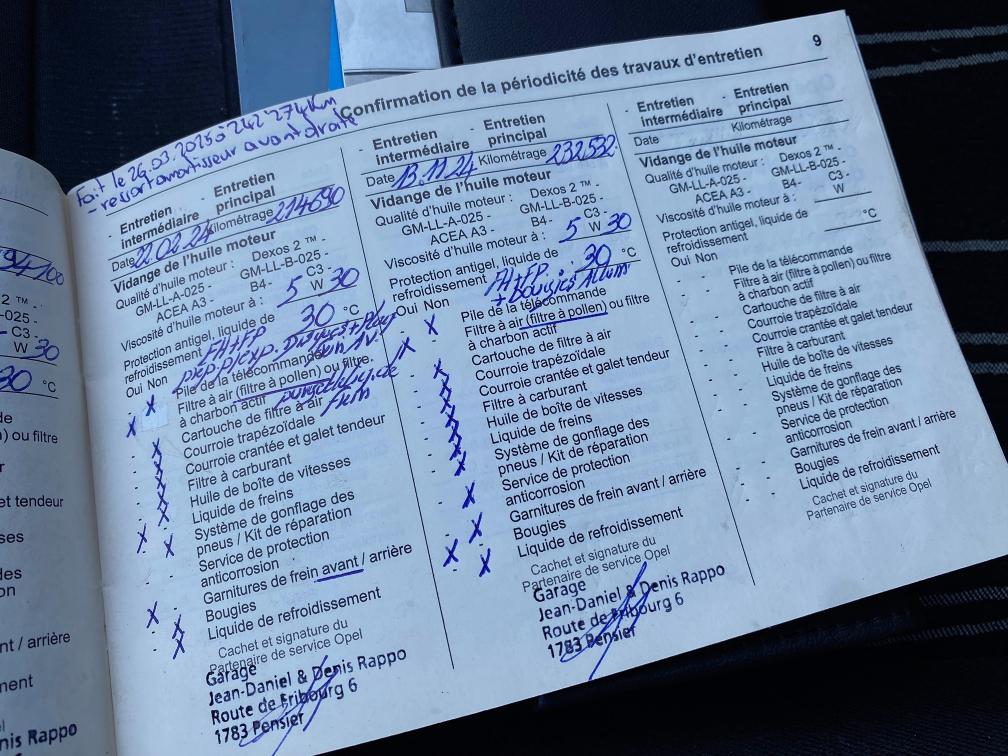 9
Confirmation de la périodicité des travaux d'entretien
Fait le 24.03.2025 à 242'274 Km
- ressort amortisseur avant droite
Entretien intermédiaire - Entretien principal
Date 22.02.24 Kilométrage 214690
Vidange de l'huile moteur
Qualité d'huile moteur : Dexos 2 ™ -
GM-LL-A-025 - GM-LL-B-025 -
ACEA A3 - B4- C3 -
Viscosité d'huile moteur à : 5 W 30
Protection antigel, liquide de
refroidissement 30 °C
FH+FP
Oui Non
Pile de la télécommande
Filtre à air (filtre à pollen) ou filtre
à charbon actif
Cartouche de filtre à air
Courroie trapézoïdale
Courroie crantée et galet tendeur
Filtre à carburant
Huile de boîte de vitesses
Liquide de freins
Système de gonflage des
pneus / Kit de réparation
Service de protection
anticorrosion
Garnitures de frein avant / arrière
Bougies
Liquide de refroidissement
Cachet et signature du
Partenaire de service Opel
Garage
Jean-Daniel & Denis Rappo
Route de Fribourg 6
1783 Pensier
- Entretien intermédiaire - Entretien principal
Date 13.11.24 Kilométrage 232532
Vidange de l'huile moteur
Qualité d'huile moteur : Dexos 2 ™ -
GM-LL-A-025 - GM-LL-B-025 -
ACEA A3 - B4- C3 -
Viscosité d'huile moteur à : 5 W 30
Protection antigel, liquide de
refroidissement 30 °C
FH+FP
+ Bougies Allum
Oui Non
Pile de la télécommande
Filtre à air (filtre à pollen) ou filtre
à charbon actif
Cartouche de filtre à air
Courroie trapézoïdale
Courroie crantée et galet tendeur
Filtre à carburant
Huile de boîte de vitesses
Liquide de freins
Système de gonflage des
pneus / Kit de réparation
Service de protection
anticorrosion
Garnitures de frein avant / arrière
Bougies
Liquide de refroidissement
Cachet et signature du
Partenaire de service Opel
Garage
Jean-Daniel & Denis Rappo
Route de Fribourg 6
1783 Pensier
- Entretien intermédiaire - Entretien principal
Date Kilométrage
Vidange de l'huile moteur
Qualité d'huile moteur : Dexos 2 ™ -
GM-LL-A-025 - GM-LL-B-025 -
ACEA A3 - B4- C3 -
Viscosité d'huile moteur à : W
Protection antigel, liquide de
refroidissement °C
Oui Non
Pile de la télécommande
Filtre à air (filtre à pollen) ou filtre
à charbon actif
Cartouche de filtre à air
Courroie trapézoïdale
Courroie crantée et galet tendeur
Filtre à carburant
Huile de boîte de vitesses
Liquide de freins
Système de gonflage des
pneus / Kit de réparation
Service de protection
anticorrosion
Garnitures de frein avant / arrière
Bougies
Liquide de refroidissement
Cachet et signature du
Partenaire de service Opel